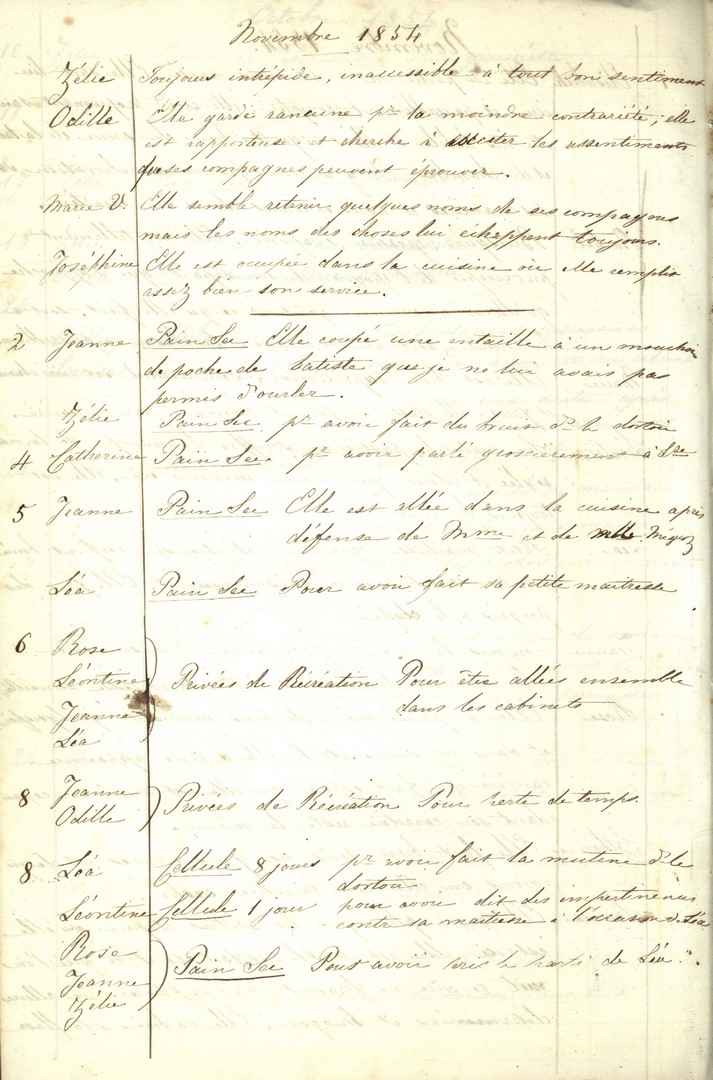 Novembre 1854
Zélie Toujours intrépide, inaccessible à tout bon sentiment
Odille Elle garde rancune pr la moindre contrariété; elle
est rapporteuse et cherche à exciter les ressentiments
que ses compagnes peuvent éprouver.
Marie V. Elle semble retenir quelques noms de ses compagnes
mais les noms des choses lui échappent toujours.
Joséphine Elle est occupée dans la cuisine où elle remplit
assez bien son service.
2 Jeanne Pain Sec Elle coupé une entaille à un mouchoir
de poche de batiste que je ne lui avais pas
permis d'ourler.
Zélie Pain Sec pr avoir fait du bruit ds le dortoir
4 Catherine Pain Sec pr avoir parlé grossièrement à
5 Jeanne Pain Sec Elle est allée dans la cuisine après
défense de Mme et de mlle
Léa Pain Sec Pour avoir fait sa petite maitresse
6 Rose
Léontine Privées de Récréation Pour êtes allées ensemble
Jeanne dans les cabinets
Léa
8 Jeanne Privées de Récréation Pour perte de temps.
Odille
8 Léa Cellule 8 jours pr avoir fait la mutine ds le
dortoir
Léontine Cellule 1 jour pour avoir dit des impertinences
contre sa maitresse à l'occasion de Léa
Rose
Jeanne Pain Sec Pour avoir pris le parti de Léa.
Zélie